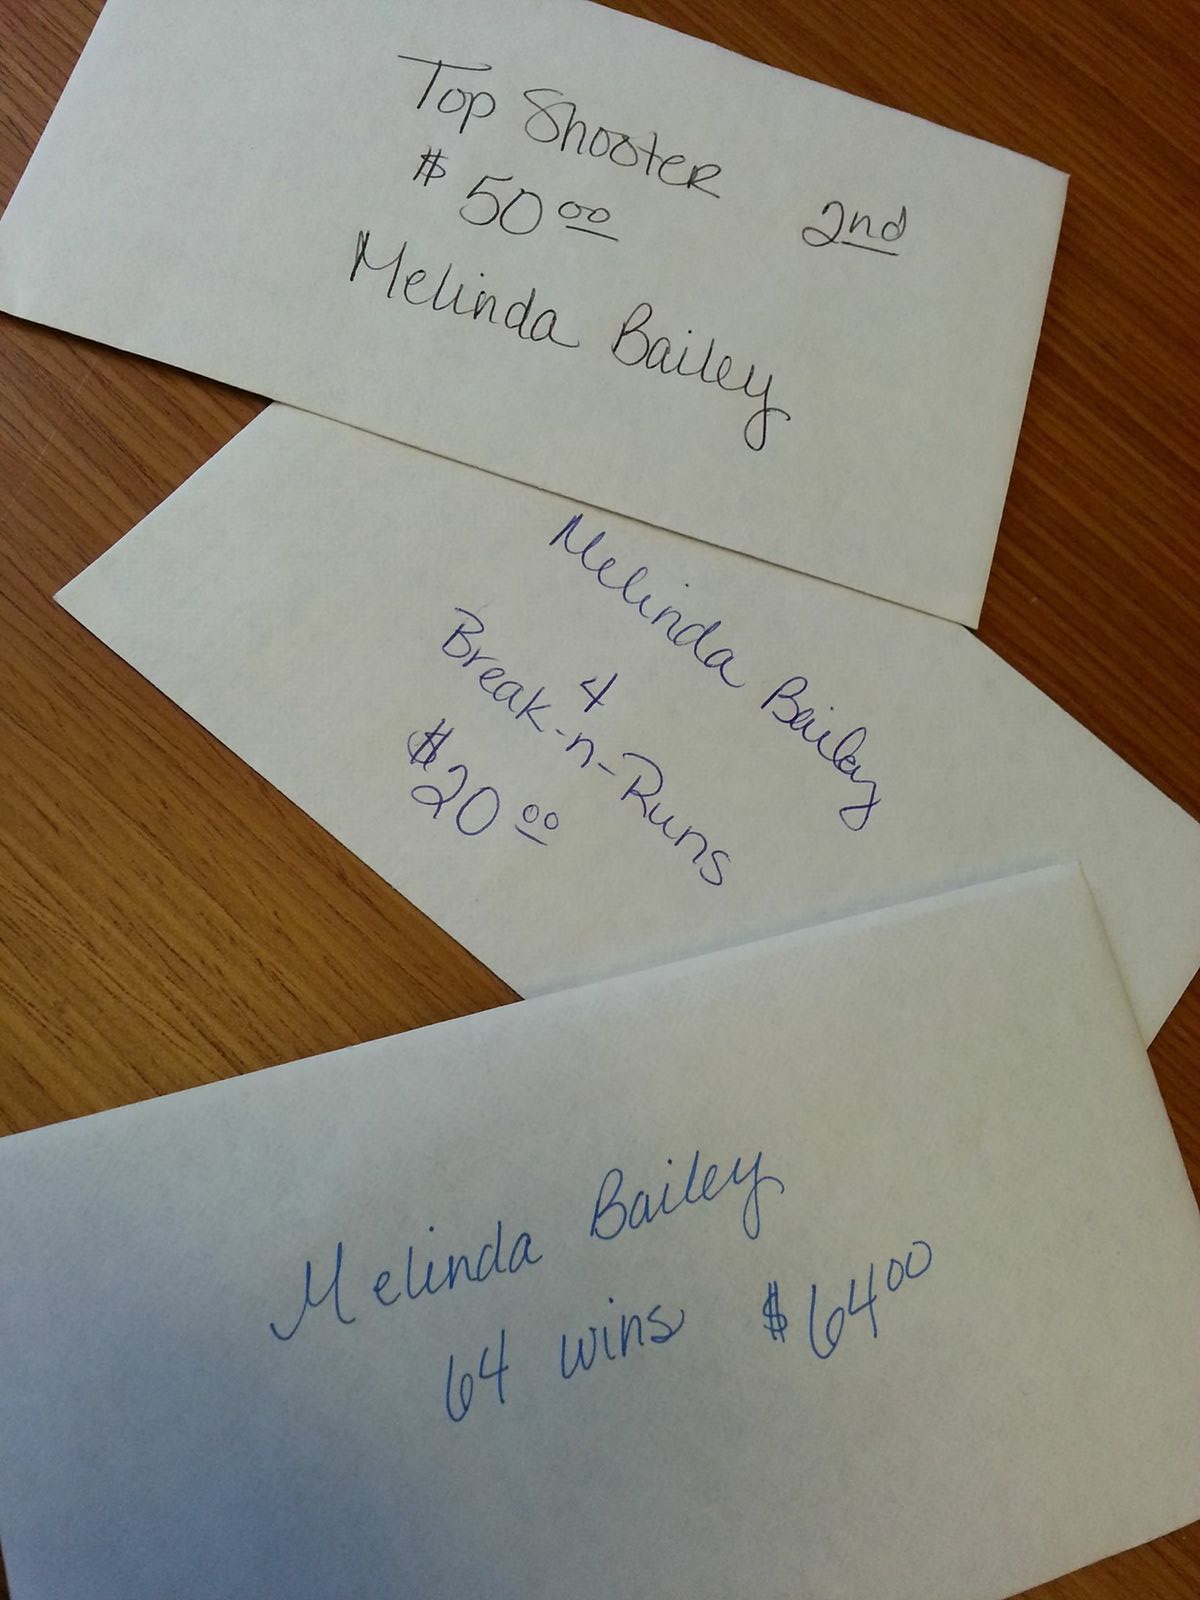 Top Shooter
$50.00 2nd
Melinda Bailey
Melinda Bailey
4
Break-n-Runs
$20.00
Melinda Bailey
64 wins $64.00